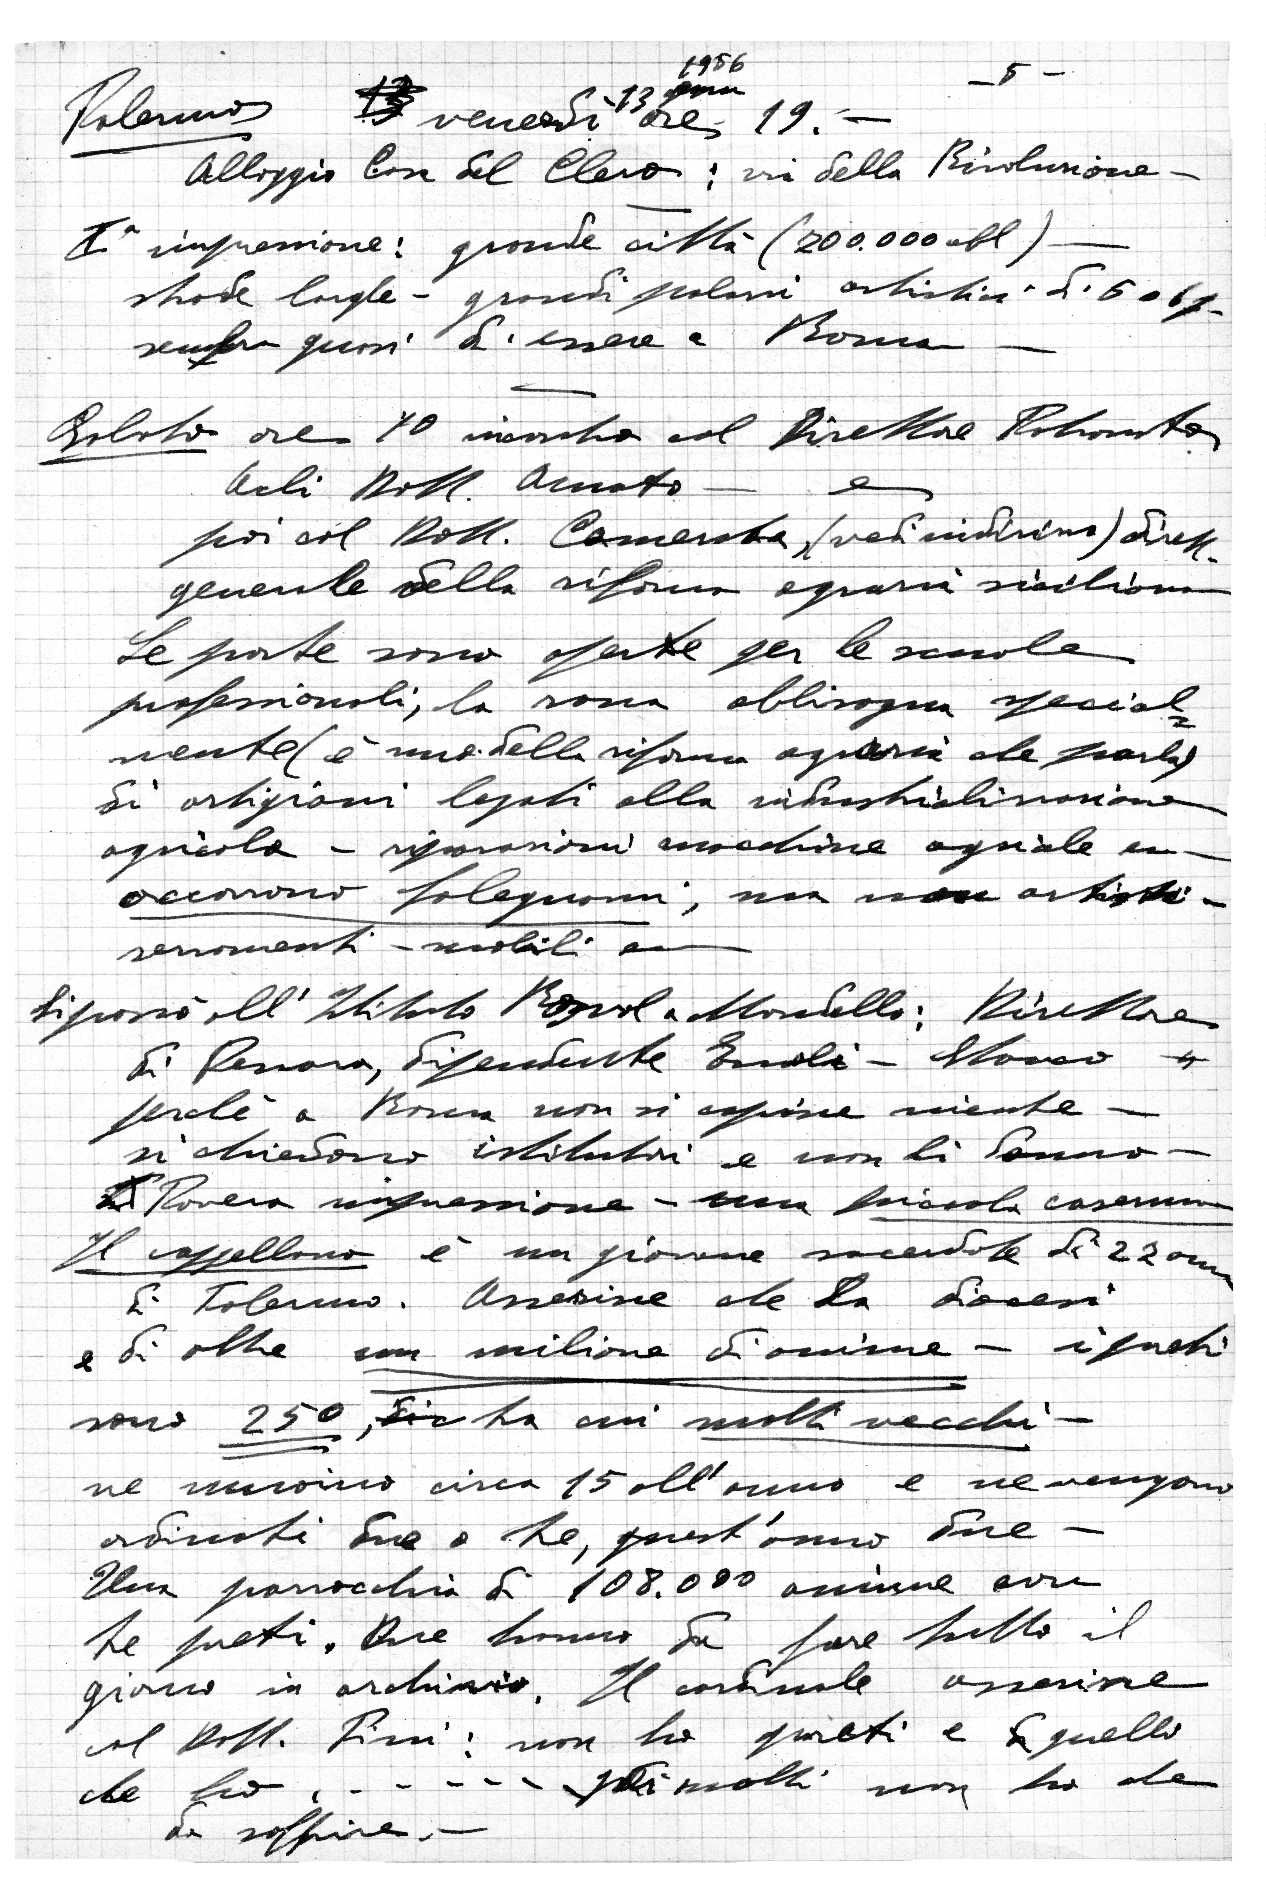 1956
- 5 -
Palermo venerdì 13 genn ore 19. -
Alloggio Casa del Clero : via della Rivoluzione -
Iª impressione: grande città (200.000 abl) -
strade larghe - grandi palazzi artistici di 5 o 6 p.
sembra quasi di essere a Roma -
Sabato ore 10 incontro col Direttore Patronato
Acli Dott. Amato - e
poi col Dott. Cammarata, (vedi indirizzo) dirett.
generale della riforma agraria siciliana
Le porte sono aperte per le scuole
professionali, la zona abbisogna special
mente (è uno della riforma agraria che parla)
di artigiani legati alla industrializzazione
agricola - riparazioni macchine agricole ecc -
occorrono falegnami, ma non artisti -
serramenti - mobili ecc
Si passò all' Istituto Roosvel a Mondello: Direttore
di Pessaro, dipendente Enaoli - Stanco
perchè a Roma non si capisce niente -
si chiedono istitutori e non li danno -
Povera impressione - una piccola caserma
Il cappellano è un giovane sacerdote di 22 anni
di Palermo. Asserisce che la diocesi
e di oltre un milione di anime - i preti
sono 250, tra cui molti vecchi -
ne muoiono circa 15 all'anno e ne vengono
ordinati due o tre, quest'anno due -
Una parrocchia di 108.000 anime con
tre preti. Due hanno da fare tutto il
giorno in archivio. Il cardinale asserisce
col Dott. Pini : non ho preti e di quelli
che ho . - - - - - - molti non ho che
da soffrire. -